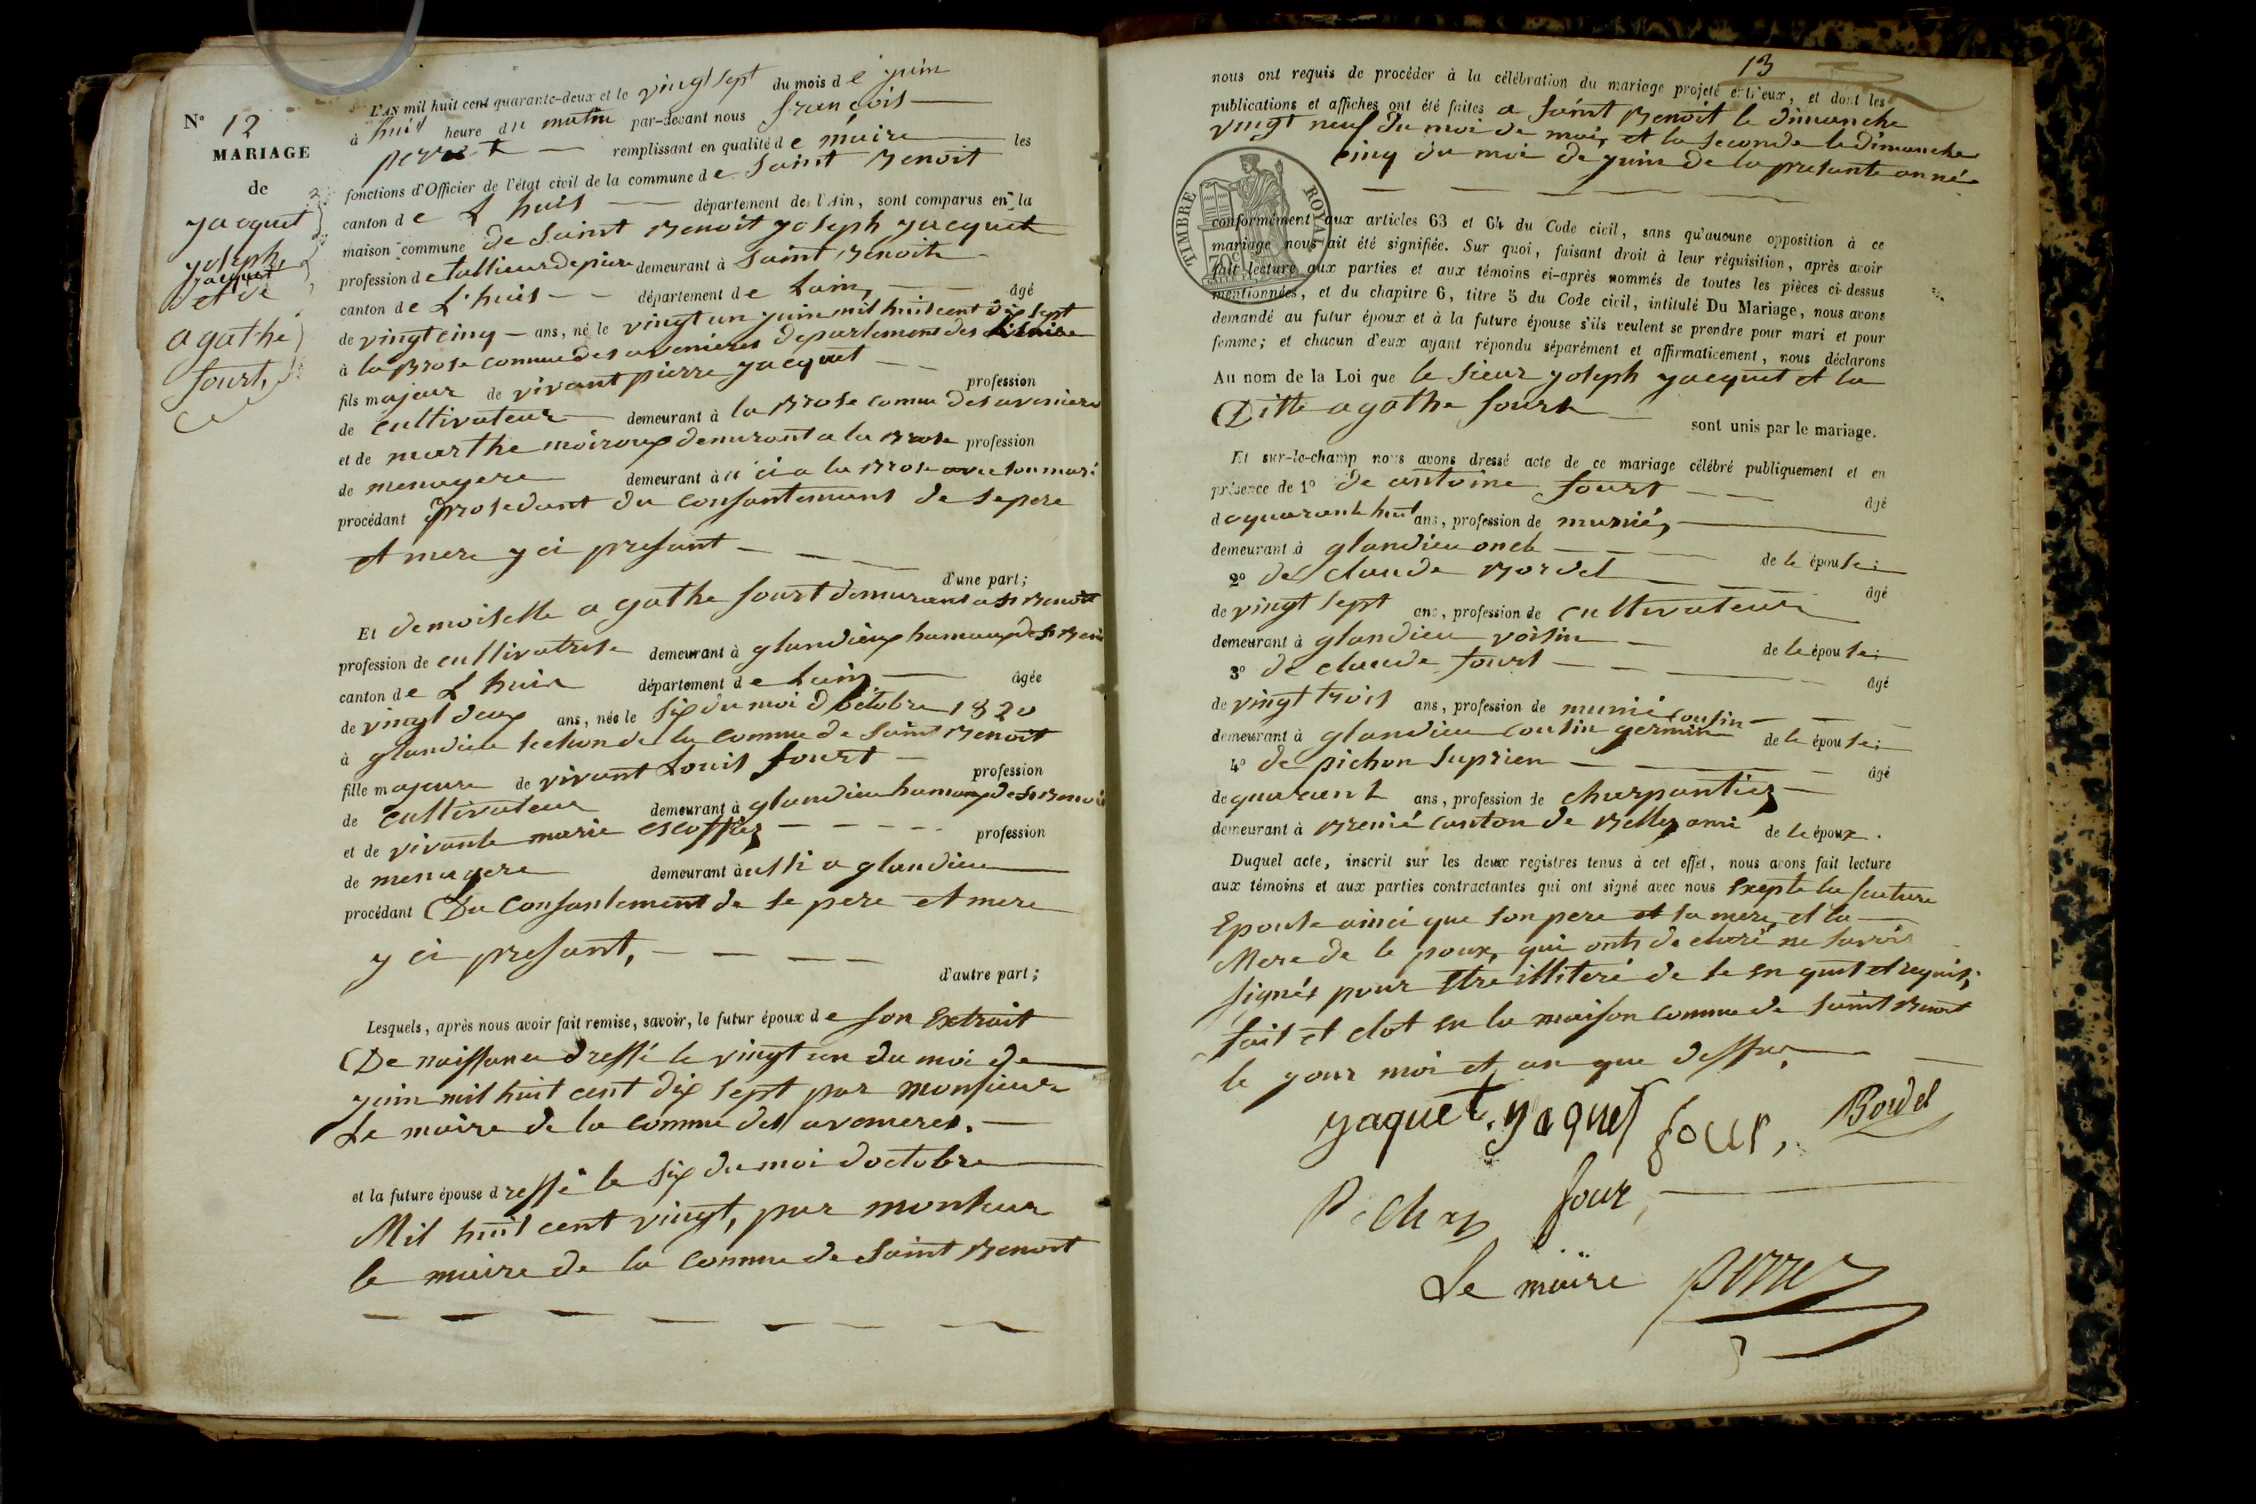 N° 12
MARIAGE
de
yacquet
yoseph
yacquet
et de
agathe
fourt,
L'AN mil huit cent quarante-deux et le vingt sept du mois de yuin
à huit heure du matin par-devant nous françois
perret remplissant en qualité de maire les
fonctions d'Officier de l'état civil de la commune de Saint Benoit
canton de L huis département de l'Ain, sont comparus en la
maison commune de Saint Benoit yoseph yacquet
profession de tallieur de piere demeurant à Saint Benoit
canton de L'huis département de Lain, âgé
de vingt cinq ans, né le vingt un yuin mil huit cent dix sept
à la Brose commue des avenieres departement des Liserre
fils majeur de vivant pierre yacquet profession
de cultivateur demeurant à la Brose commue des avenieres
et de marthe moiroux demurant a la Brose profession
de menagere demeurant à a la Brose avec son mari
procédant prosedant du consantemant de se pere
et mere y ci presant
d'une part;
Et demoiselle agathe fourt demurant a St Benoit
profession de cultivatrise demeurant à glandieux hamaux de St Benoi
canton de L huis département de Lain âgée
de vingt deux ans, née le six du moi d octobre 1820
à glandieu section de la commue de Saint Benoit
fille majeure de vivant Louis fourt profession
de cultivateur demeurant à glandieu hamaux de St Benoit
et de vivante marie escoffier profession
de menagere demeurant à ussi a glandieu
procédant Du Consantement de se pere et mere
y ci presant,
d'autre part;
Lesquels, après nous avoir fait remise, savoir, le futur époux de son Extrait
De naissance dressé le vingt un du moi de
yuin mil huit cent dix sept par monsieur
Le maire de la commue des avenieres.
et la future épouse dressé le six du moi doctobre
Mil huit cent vingt, par monsieur
le maire de la commue de Saint Benoit
13
nous ont requis de procéder à la célébration du mariage projeté entr'eux, et dont les
publications et affiches ont été faites a Saint Benoit le dimanche
vingt neuf du moi de mai, et la seconde le dimanche
cinq du moi de yuin de la presante anné
TIMBRE ROYAL
conformément aux articles 63 et 64 du Code civil, sans qu'aucune opposition à ce
mariage nous ait été signifiée. Sur quoi, faisant droit à leur réquisition, après avoir
fait lecture aux parties et aux témoins ci-après nommés de toutes les pièces ci-dessus
mentionnées, et du chapitre 6, titre 5 du Code civil, intitulé Du Mariage, nous avons
demandé au futur époux et à la future épouse s'ils veulent se prendre pour mari et pour
femme; et chacun d'eux ayant répondu séparément et affirmativement, nous déclarons
Au nom de la Loi que le sieur yoseph yacquet et la
Ditte agathe fourt
sont unis par le mariage.
Et sur-le-champ nous avons dressé acte de ce mariage célébré publiquement et en
présence de 1° de antoine fourt âgé
de quarante huit ans, profession de munié,
demeurant à glandieu oncle de le épouse;
2° de claude Bordel âgé
de vingt sept ans, profession de cultivateur
demeurant à glandieu voisin de le épouse;
3° de claude fourt âgé
de vingt trois ans, profession de munié cousin
demeurant à glandieu cousin germin de le épouse;
4° de pichon suprien âgé
de quarant ans, profession de charpantier
demeurant à Brenié canton de Belley ami de le époux.
Duquel acte, inscrit sur les deux registres tenus à cet effet, nous avons fait lecture
aux témoins et aux parties contractantes qui ont signé avec nous Exepte la future
Epouse ainci que son pere et sa mere, et la
Mere de le poux, qui onts declaré ne savoir
signér pour etre illiteré de se en quit et requis;
fait et clot en la maison commue de Saint Benoit
le your moi et an que dessus,
yaquet. yaquet four, Bordel
Pichon four,
Le maire perret